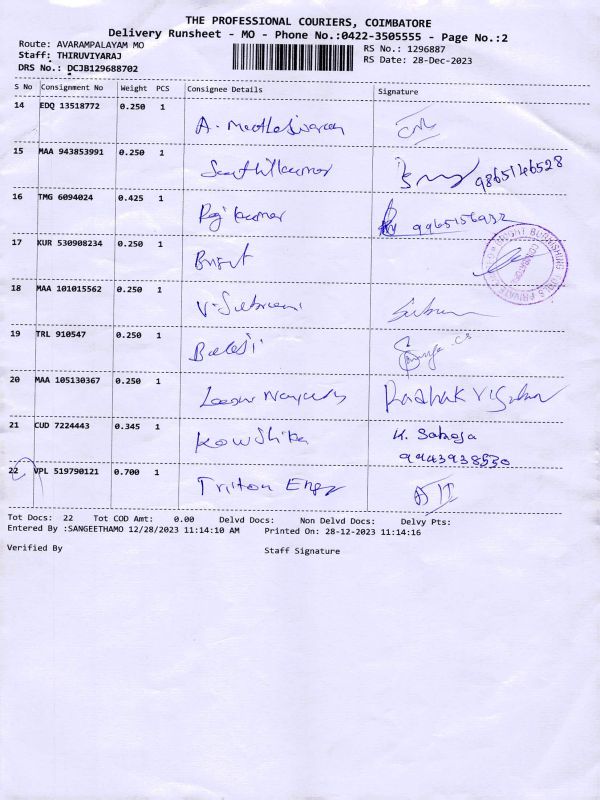 THE PROFESSIONAL COURIERS, COIMBATORE
Delivery Runsheet - MO - Phone No.:0422-3505555 - Page No.:2
Route: AVARAMPALAYAM MO
RS No.: 1296887
Staff: THIRUVIYARAJ
RS Date: 28-Dec-2023
DRS No.: DCJB129688702
S No Consignment No Weight PCS Consignee Details Signature
14 EDQ 13518772 0.250 1
15 MAA 943853991 0.250 1 Senthilkumar 9865146528
16 TMG 6094024 0.425 1 Raj kumar
17 KUR 530908234 0.250 1
18 MAA 101015562 0.250 1
19 TRL 910547 0.250 1 Balaji
20 MAA 105130367 0.250 1
21 CUD 7224443 0.345 1 Kowshika
9943938530
22 VPL 519790121 0.700 1 Triton Engg
Tot Docs: 22 Tot COD Amt: 0.00 Delvd Docs: Non Delvd Docs: Delvy Pts:
Entered By :SANGEETHAMO 12/28/2023 11:14:10 AM Printed On: 28-12-2023 11:14:16
Verified By Staff Signature